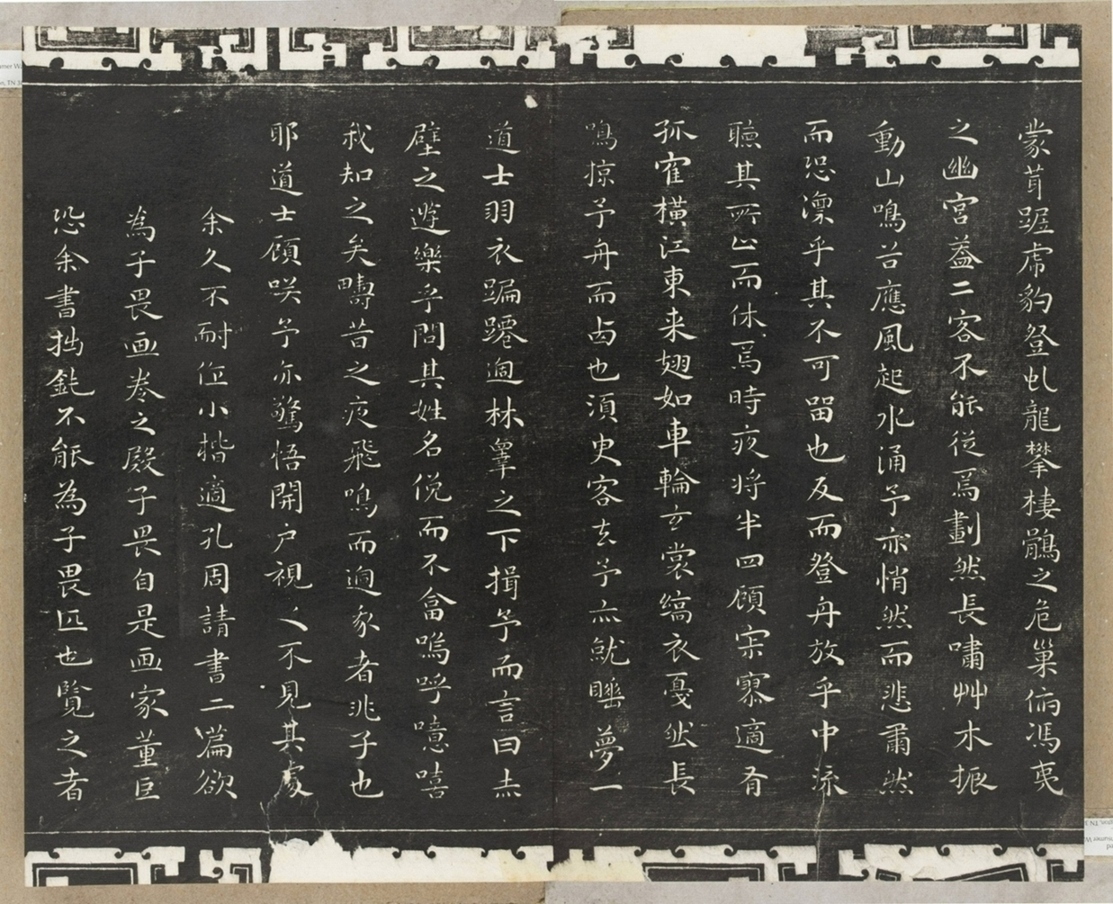 蒙茸踞虎豹登虬龍攀棲鶻之危巢俯馮夷
之幽宮蓋二客不能從焉劃然長嘯艸木振
動山鳴谷應風起水涌予亦悄然而悲肅然
而恐凜乎其不可留也反而登舟放乎中流
聽其所止而休焉時夜將半四顧寂寥適有
孤隺橫江東来翅如車輪玄裳縞衣戛然長
鳴掠予舟而西也須臾客去予亦就睡夢一
道士羽衣蹁躚過林臯之下揖予而言曰赤
壁之遊樂乎問其姓名俛而不畣嗚呼噫嘻
我知之矣疇昔之夜飛鳴而過我者非子也
耶道士顧咲予亦驚悟開戶視之不見其處
余久不耐作小楷適孔周請書二篇欲
為子畏画卷之殿子畏自是画家董巨
恐余書拙鈍不能為子畏匹也覽之者